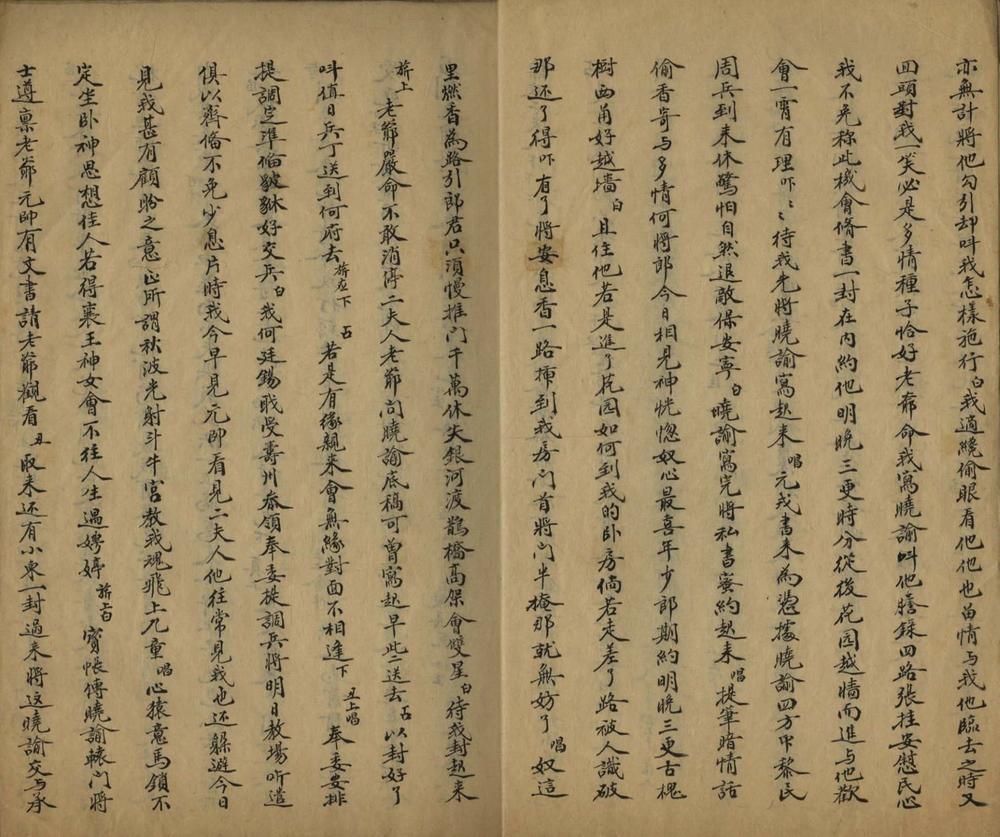 亦無計將他勾引却叫我怎樣施行白我適纔偷眼看他他也留情与我他臨去之時又
回頭對我一笑必是多情種子恰好老爺命我寫曉諭叫他謄錄四路張挂安慰民心
我不免称此機會脩書一封在内約他明晚三更時分從後花园越墙而進与他歡
會一宵有理吓〻待我先將曉諭寫起来唱元戎書来為憑據曉諭四方中黎民
周兵到来休驚怕自然退敵保安寧白曉諭寫完將私書蜜約起来唱提筆暗情話
偷香寄与多情何將郎今日相見神恍惚奴心最喜年少郎期約明晚三更古槐
樹西甬好越墻白且住他若是進了花园如何到我的卧房倘若走差了路被人識破
那还了得吓有了將安息香一路揷到我房门首將门半掩那就無妨了唱奴這
里燃香為路引郎君只須慢推门千萬休失銀河渡鵲橋高保會雙星白待我封起来
旂上老爺嚴命不敢消停二夫人老爺问曉諭底稿可曾寫起早些送去占以封好了
呌值日兵丁送到何府去旂应下占若是有缘親来會無緣對面不相逢下丑上唱奉委安排
提調定準備貔貅好交兵白我何廷錫戝受壽州叅領奉委提調兵將明日教場听遣
俱以齊俻不免少息片時我今早見元帥看見二夫人他往常見我也还躲避今日
見我甚有顧盼之意正所謂秋波光射斗牛宫教我魂飛上九重唱心猿意馬鎖不
定坐卧神思想佳人若得襄王神女會不往人生過娉婷旂上白寳帐傳曉諭轅门將
士遵稟老爺元帥有文書請老爺觀看丑取来还有小柬一封過来將这曉諭交与承